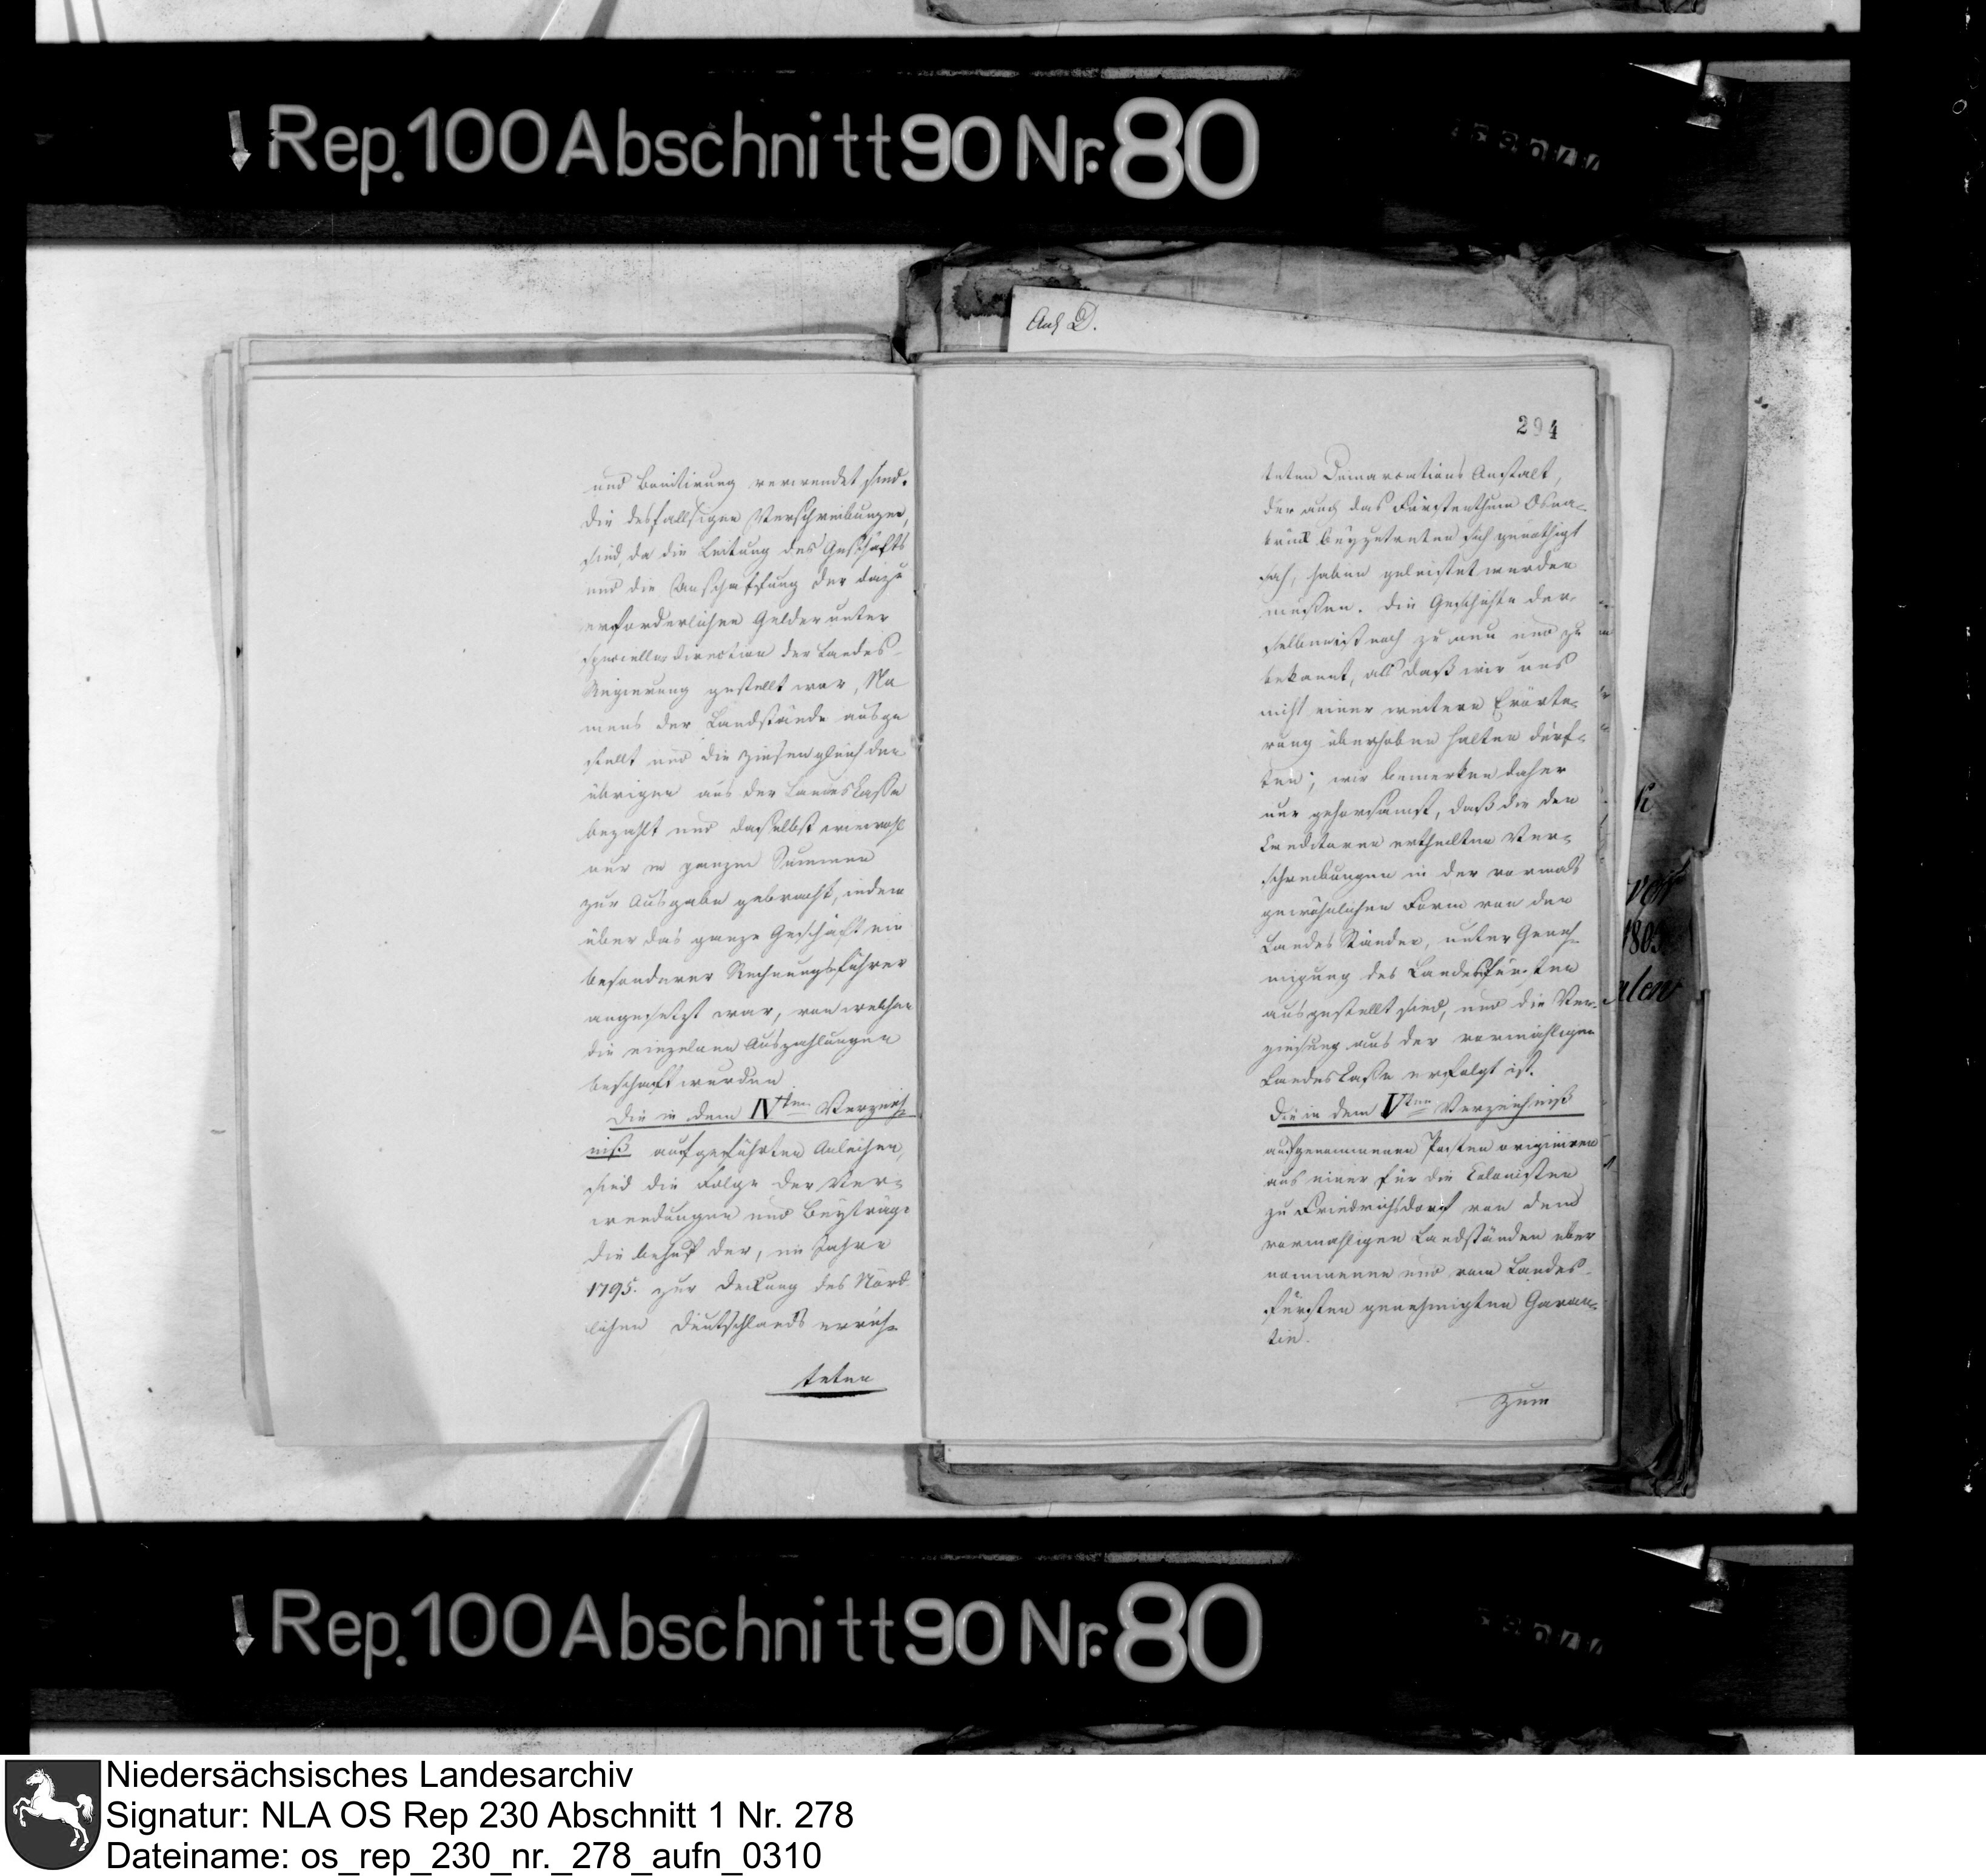 Rep. 100 Abschnitt 90 Nr. 80
Anl D.
und Bonitirung verwendet sind.
Die desfallsigen Verschreibungen,
sind, da die Leitung des Geschäfts
und die Anschaffung der dazu
erforderlichen Gelder unter
specieller Direction der Landes-
Regierung gestellt war, Na
mens der Landstände ausge
stellt und die Zinsen gleich den
übrigen aus der Landes Casse
bezahlt und daselbst wiewohl
nur in ganzen Summen
zur Ausgabe gebracht, indem
über das ganze Geschäft ein
besonderer Rechnungsführer
angesetzt war, von welchem
die einzelnen Auszahlungen
beschafft wurden
Die in dem IVten Verzeich
niß aufgeführten Anleihen,
sind die Folge der Ver-
wendungen und Beyträge
die behuf der, im Jahre
1795. zur Deckung des Nörd
lichen Deutschlands errich-
teten
294
teten Demarcations Anstalt,
der auch das Fürstenthum Osna-
brück beyzutreten sich genöthigt
sah, haben geleistet werden
müßen. Die Geschichte der-
selben ist noch zu neu und zu
bekannt, als daß wir uns
nicht einer weitern Erörte-
rung überhoben halten dürf-
ten; wir bemerken daher
nur gehorsamst, daß die den
Creditoren ertheilten Ver-
schreibungen in der vormals
gewöhnlichen Form von den
Landes Ständen, unter Geneh-
migung des Landesfürsten
ausgestellt sind, und die Ver-
zinsung aus der vormahligen
Landes Casse erfolgt ist.
Die in dem Vten Verzeichniß
aufgenommenen Posten originiren
aus einer für die Colonisten
zu Friedrichsdorf von den
vormahligen Landständen über
nommenen und vom Landes-
fürsten genehmigten Garan-
tie.
Zum
Rep. 100 Abschnitt 90 Nr. 80
Niedersächsisches Landesarchiv
Signatur: NLA OS Rep 230 Abschnitt 1 Nr. 278
Dateiname: os_rep_230_nr._278_aufn_0310